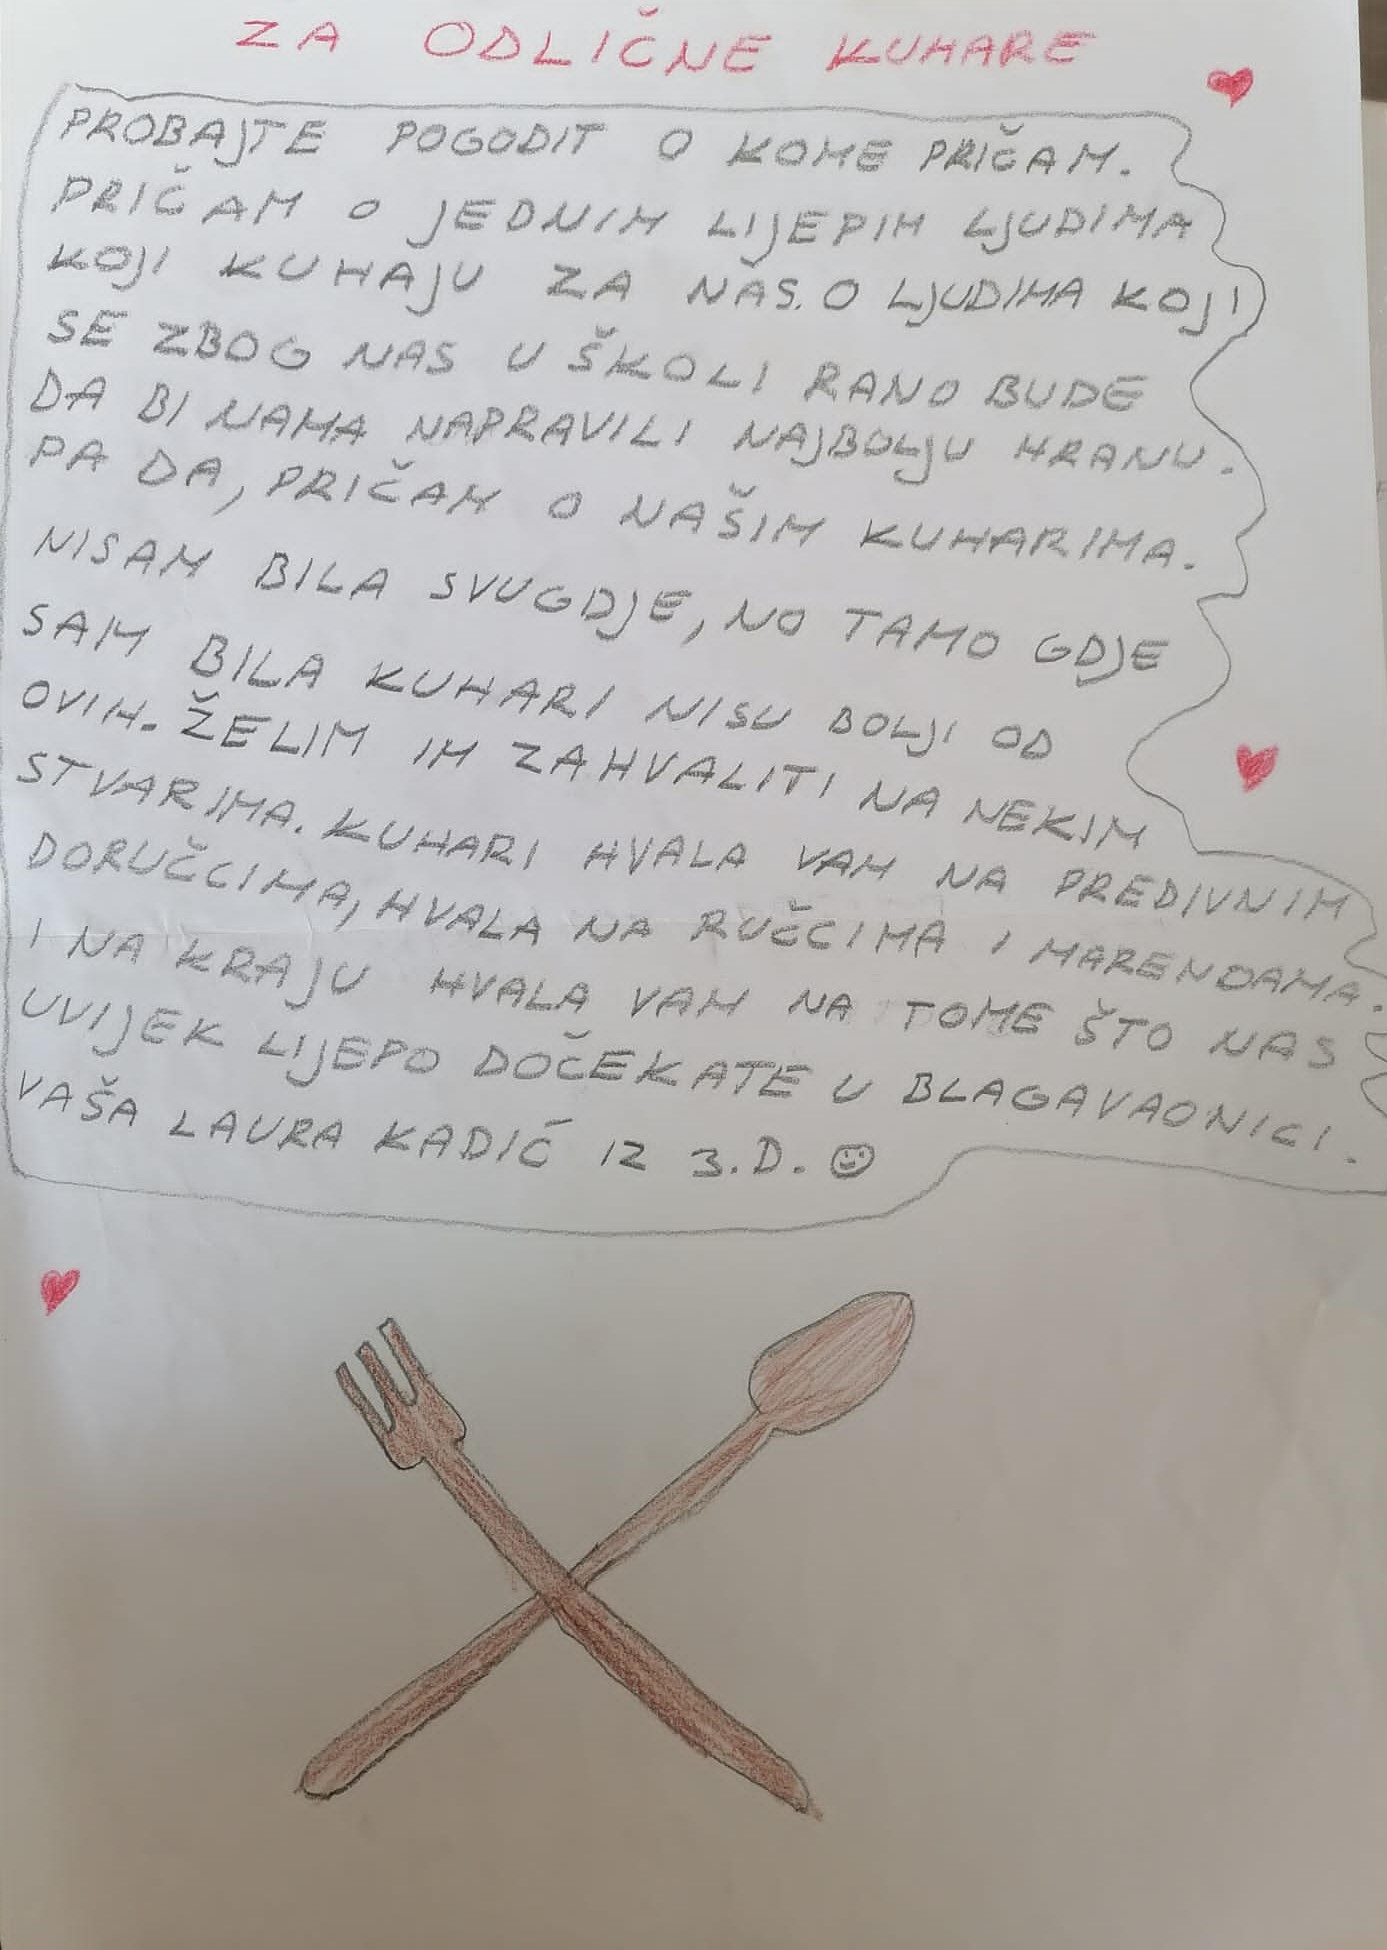 ZA ODLIČNE KUHARE
PROBAJTE POGODIT O KOME PRIČAM.
PRIČAM O JEDNIM LIJEPIM LJUDIMA
KOJI KUHAJU ZA NAS. O LJUDIMA KOJI
SE ZBOG NAS U ŠKOLI RANO BUDE
DA BI NAMA NAPRAVILI NAJBOLJU HRANU.
PA DA, PRIČAM O NAŠIM KUHARIMA.
NISAM BILA SVUGDJE, NO TAMO GDJE
SAM BILA KUHARI NISU BOLJI OD
OVIH. ŽELIM IM ZAHVALITI NA NEKIM
STVARIMA. KUHARI HVALA VAM NA PREDIVNIM
DORUČCIMA, HVALA NA RUČCIMA I MARENDAMA.
I NA KRAJU HVALA VAM NA TOME ŠTO NAS
UVIJEK LIJEPO DOČEKATE U BLAGAVAONICI.
VAŠA LAURA KADIĆ IZ 3.D. ☺